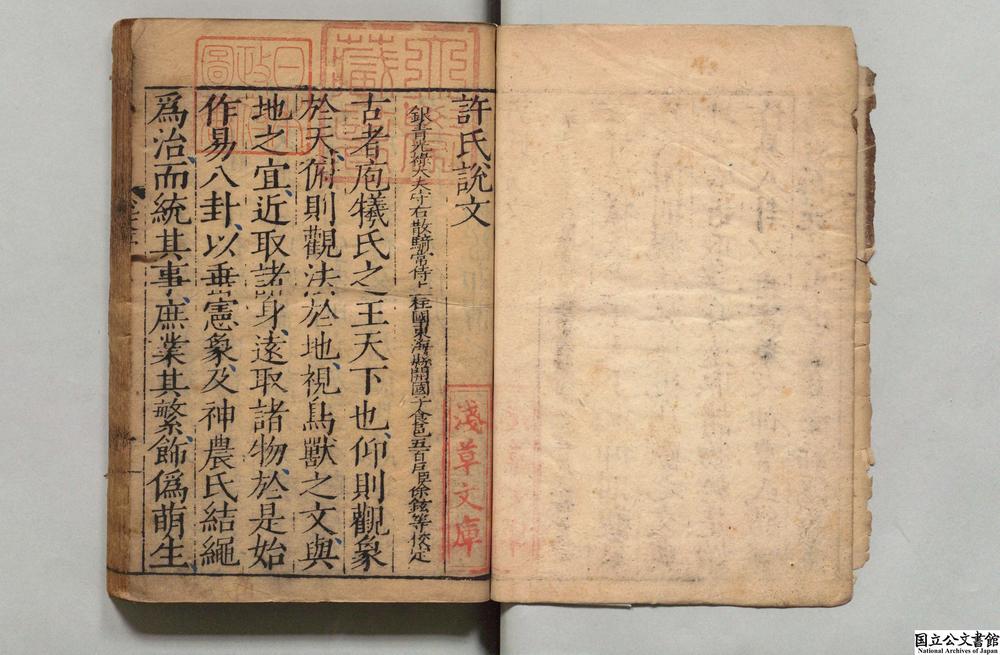 許氏說文
銀青光祿大夫守右散騎常侍上柱國東海縣開國子食邑五百戶臣徐鉉等校定
古者庖犧氏之王天下也仰則觀象
於天俯則觀法於地視鳥獸之文與
地之宜近取諸身遠取諸物於是始
作易八卦以垂憲象及神農氏結繩
爲治而統其事庶業其繁飾僞萌生
淺草文庫
日本政圖
国立公文書館
National Archives of Japan